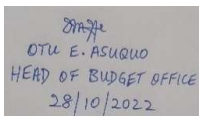 OTU E. ASUQUO
HEAD OF BUDGET OFFICE
28/10/2022